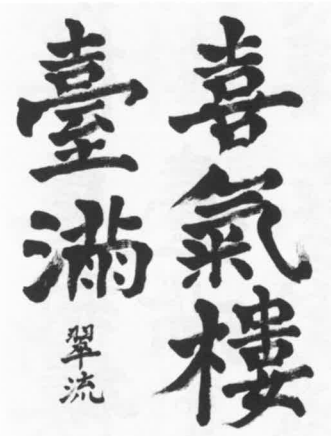 喜氣樓
臺滿
翠流